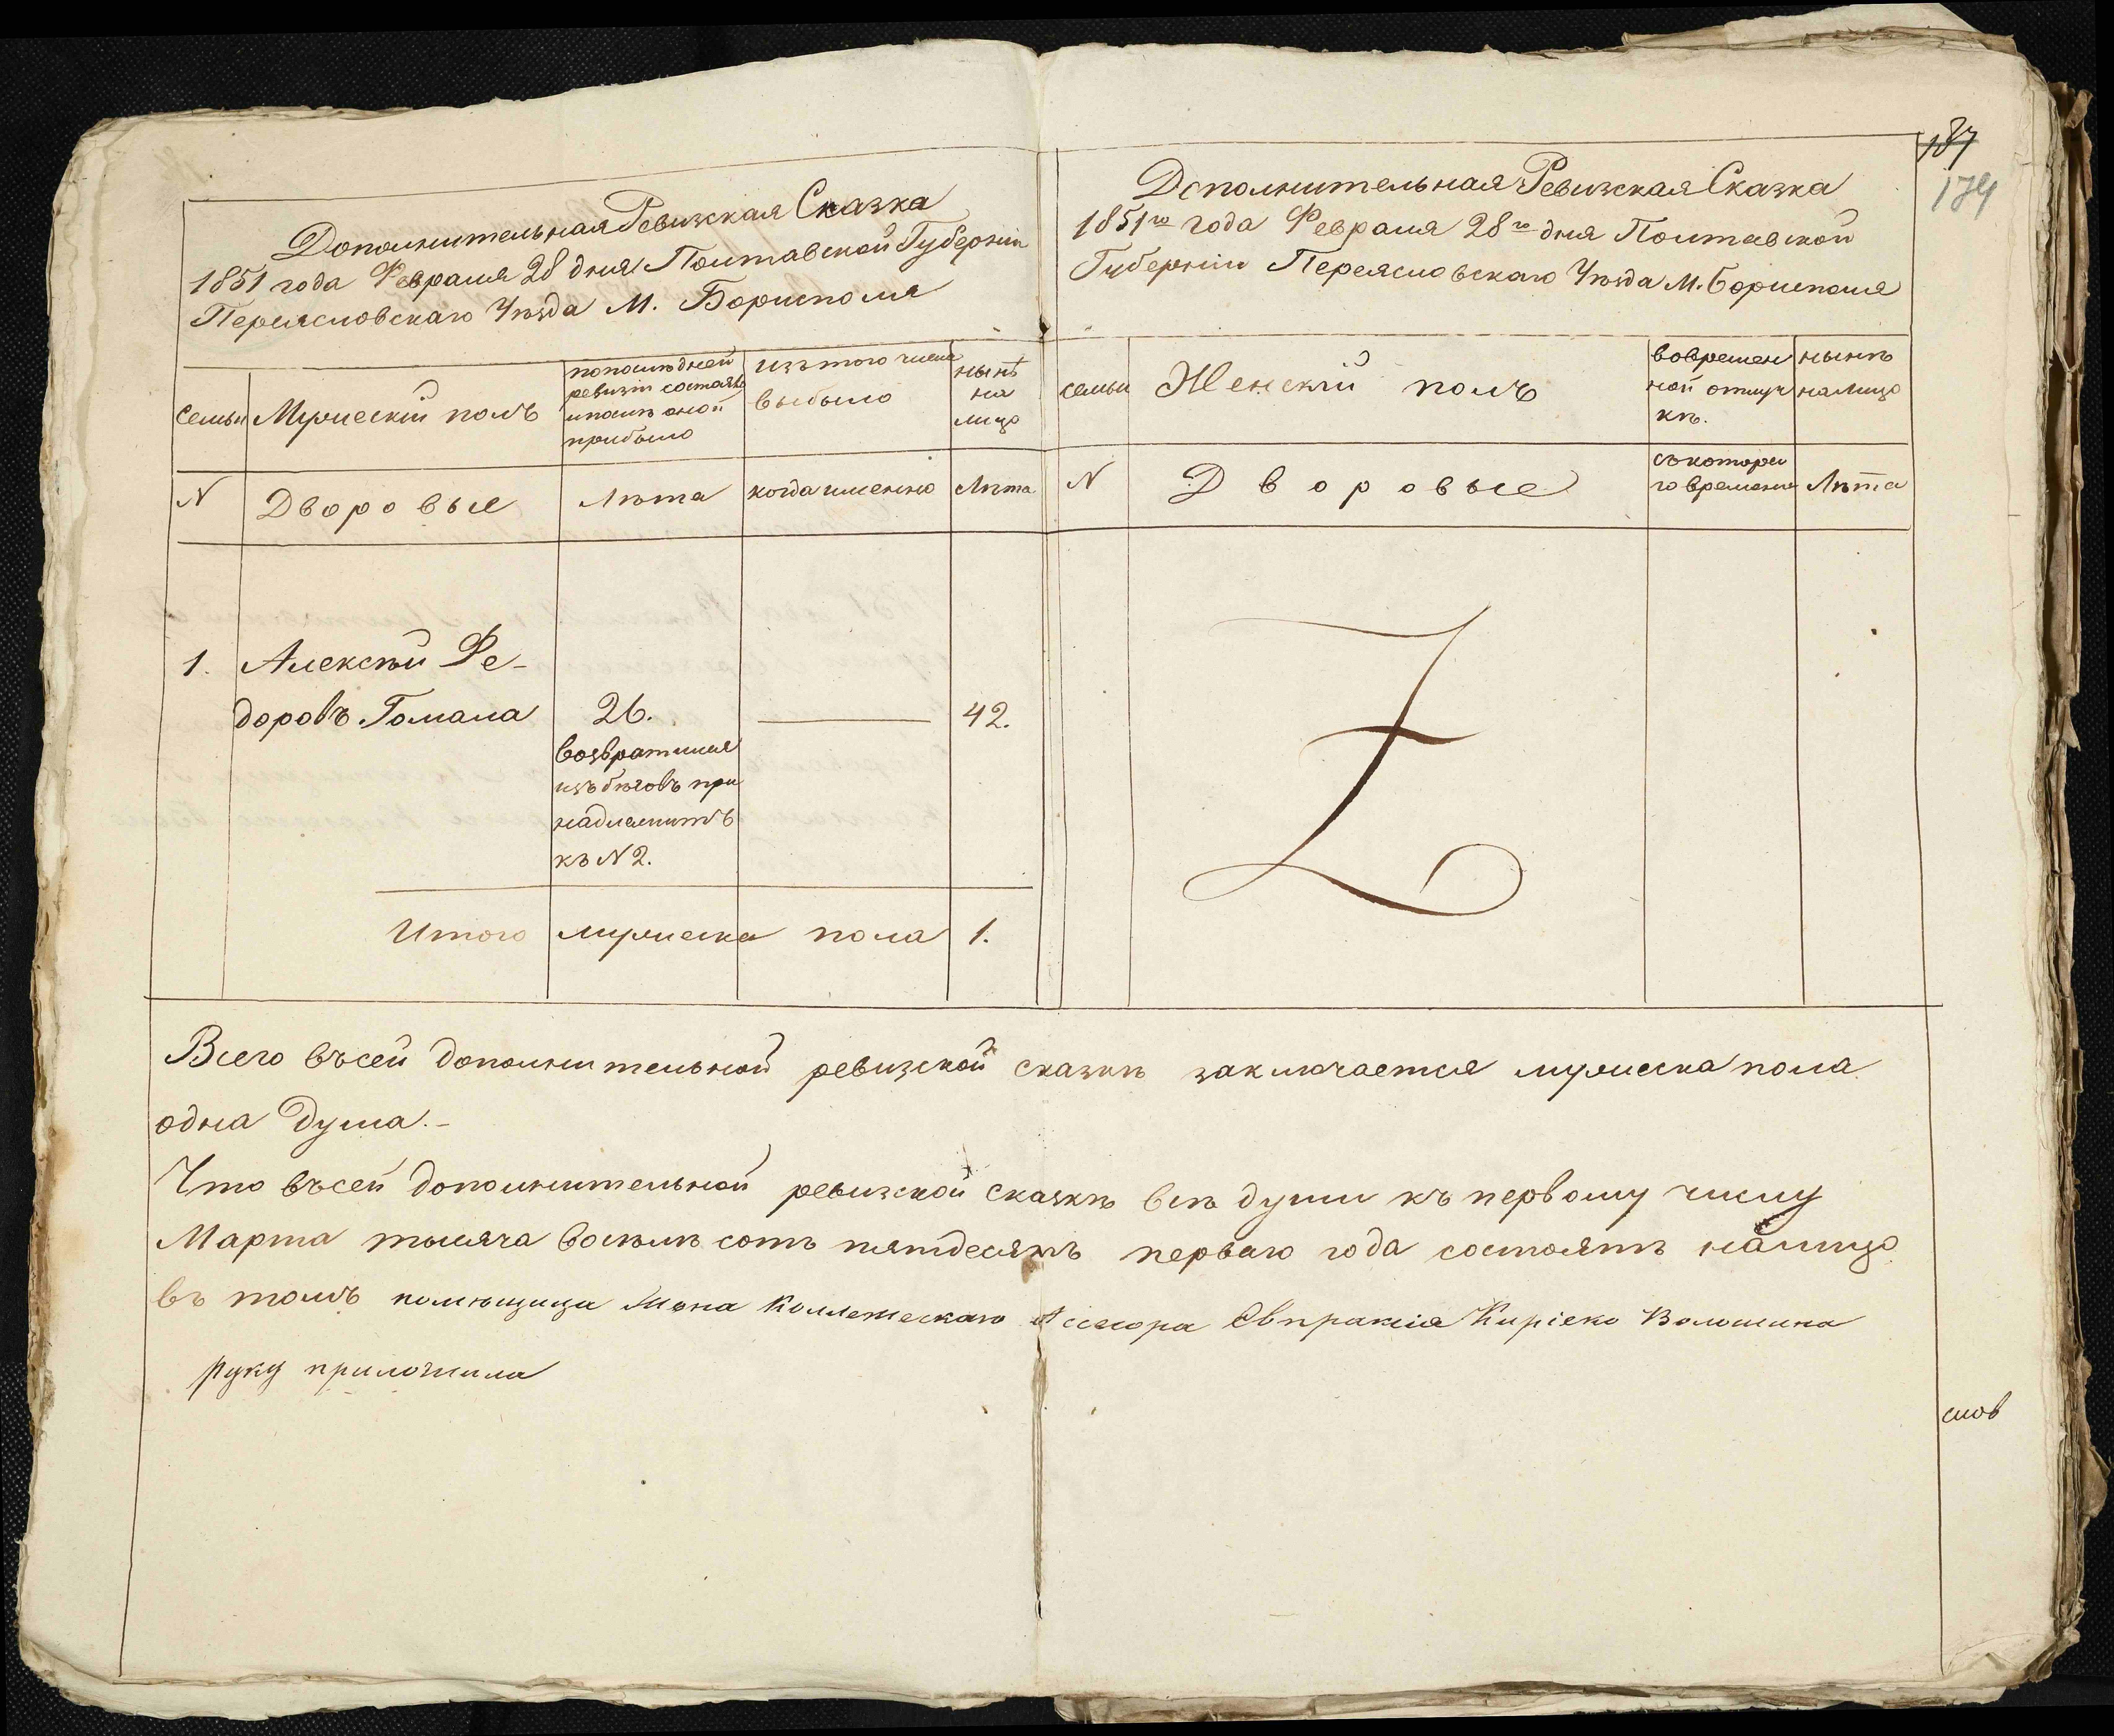 187
174
Дополнительная Ревизская Сказка
1851 года Февраля 28 дня Полтавской Губерніи
Переясловскаго Уѣзда М. Борисполя
семьи
Мужескій полъ
попослѣдней
ревизіи состояло
ипослѣ оной
прибыло
изътого числа
выбыло
нынѣ
на
лицо
N
Дворовые
Лѣта
когда именно
Лѣта
1. Алексѣй Фе-
доровъ Гомала 26. 42.
возвратился
изъ бѣговъ при
надлежитъ
къ N 2.
Итого мужеска пола 1.
Дополнительная Ревизская Сказка
1851го года Февраля 28го дня Полтавской
Губерніи Переясловскаго Уѣзда М. Борисполя
семьи
Женскій полъ
вовремен
ной отлуч
кѣ.
нынѣ
налицо
N
Дворовые
съкотора
го времени
Лѣта
Всего въсей дополнительной ревизской сказкѣ заключается мужеска пола
одна душа.-
Что въсей дополнительной ревизской сказкѣ всѣ души къ первому числу
Марта тысяча восѣмь сотъ пятдесятъ перваго года состоятъ налицо
въ томъ помѣщица Жена Коллежскаго Ассесора Евпраксія Киріеко Волошина
руку приложила
слов